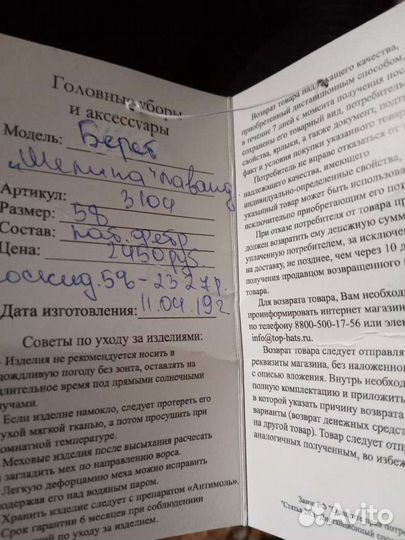 Головные уборы
и аксессуары
Модель: Берет
Артикул: 3104
Размер: 58
Состав: нат. фетр
Цена: 2450 руб
скид. 5% - 2327 р.
Дата изготовления: 11.04.19 г
Советы по уходу за изделиями:
Изделия не рекомендуется носить в
дождливую погоду без зонта, оставлять на
длительное время под прямыми солнечными
лучами.
Если изделие намокло, следует протереть его
сухой мягкой тканью, а потом просушить при
комнатной температуре.
Меховые изделия после высыхания расчесать
и загладить мех по направлению ворса.
Легкую дефорцамию меха можно исправить
подержав его над водяным паром.
Хранить изделие следует с препаратом «Антимоль».
Срок гарантии 6 месяцев при соблюдении
по уходу за изделием.
Возврат товара надлежащего качества,
приобретенный дистанционным способом,
в течение 7 дней с момента получения
сохранены его товарный вид, потребитель
свойства, ярлыки, а также документ,
факт и условия покупки указанного товара
Потребитель не вправе отказаться от
надлежащего качества, имеющего
индивидуально-определенные свойства,
указанный товар может быть использован
исключительно приобретающим его
При отказе потребителя от товара
должен возвратить ему денежную сумму
уплаченную потребителем, за исключением
на доставку, не позднее, чем через 10
получения продавцом возвращенного
товара.
Для возврата товара, Вам необходимо
проинформировать интернет магазин
по телефону 8800-500-17-56 или
info@top-hats.ru.
Возврат товара следует
реквизиты магазина, без
с описью вложения. Внутрь необходимо
полную комплектацию и приложить
в которой указать причину возврата
варианты (возврат денежных средств
на другой товар). Товар следует
аналогичных полученным, во
Avito